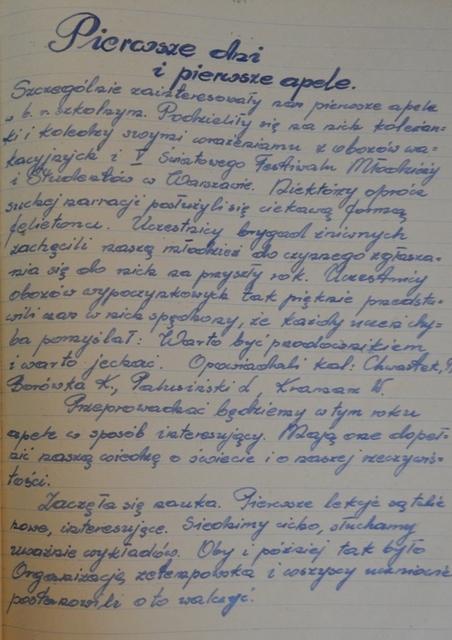 Pierwsze dni
i pierwsze apele.
Szczególnie zainteresowały nas pierwsze apele
w b. r. szkolnym. Podzieliły się na nich koleżan-
ki i koledzy swymi wrażeniami z obozów wa-
kacyjnych i V Światowego Festiwalu Młodzieży
i Studentów w Warszawie. Niektórzy oprócz
suchej narracji posłużyli się ciekawą formą
felietonu. Uczestnicy brygad żniwnych
zachęcili naszą młodzież do czynnego zgłasza-
nia się do nich na przyszły rok. Uczestnicy
obozów wypoczynkowych tak pięknie przedsta-
wili czas w nich spędzony, że każdy uczeń chy-
ba pomyślał: Warto być przodownikiem
i warto jechać. Opowiadali kol: Chwastek,
Borówska K., Palusiński L. Kraman W.
Przeprowadzać będziemy w tym roku
apele w sposób interesujący. Mają one dopeł-
nić naszą wiedzę o świecie i o naszej rzeczywis-
tości.
Zaczęła się nauka. Pierwsze lekcje są takie
nowe, interesujące. Siedzimy cicho, słuchamy
uważnie wykładów. Oby i później tak było
Organizacja zetempowska i wszyscy uczniowie
postanowili o to walczyć.